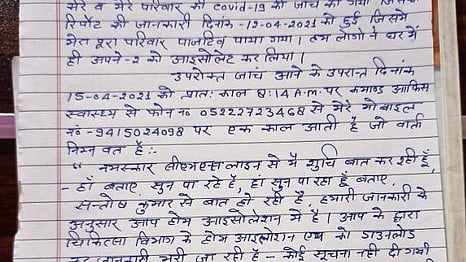 मेरे व मेरे परिवार की Covid-19 की जाँच की गयी जिसकी
रिपोर्ट की जानकारी दिनांक -12-04-2021 को हुई जिसमें
मेरा पूरा परिवार पाजटिव पाया गया। हम लोगों ने घर में
ही अपने-2 को आइसोलेट कर लिया।
उपरोक्त जांच आने के उपरान्त दिनांक
15-04-2021 को प्रातः काल 8:14 A.m. पर कमाण्ड आफिस
स्वास्थ्य से फोन नं० 05222723468 से मेरे मोबाइल
नं० -9415024098 पर एक काल आती है जो वार्ता
निम्न वत है:-
" नमस्कार सीएमएस लाइन से मैं शुचि बात कर रही हूँ,
- हाँ बताए, सुन पा रहे है, हां सुन पा रहा हूँ बताए,
सन्तोष कुमार से बात हो रही है, हमारी जानकारी के
अनुसार आप होम आइसोलेशन में है। आप के द्वारा
चिकित्सा विभाग के होम आइसोलेशन एप्प को डाउनलोड
कर जानकारी भरी जा रही है - कोई सूचना नही दी गयी